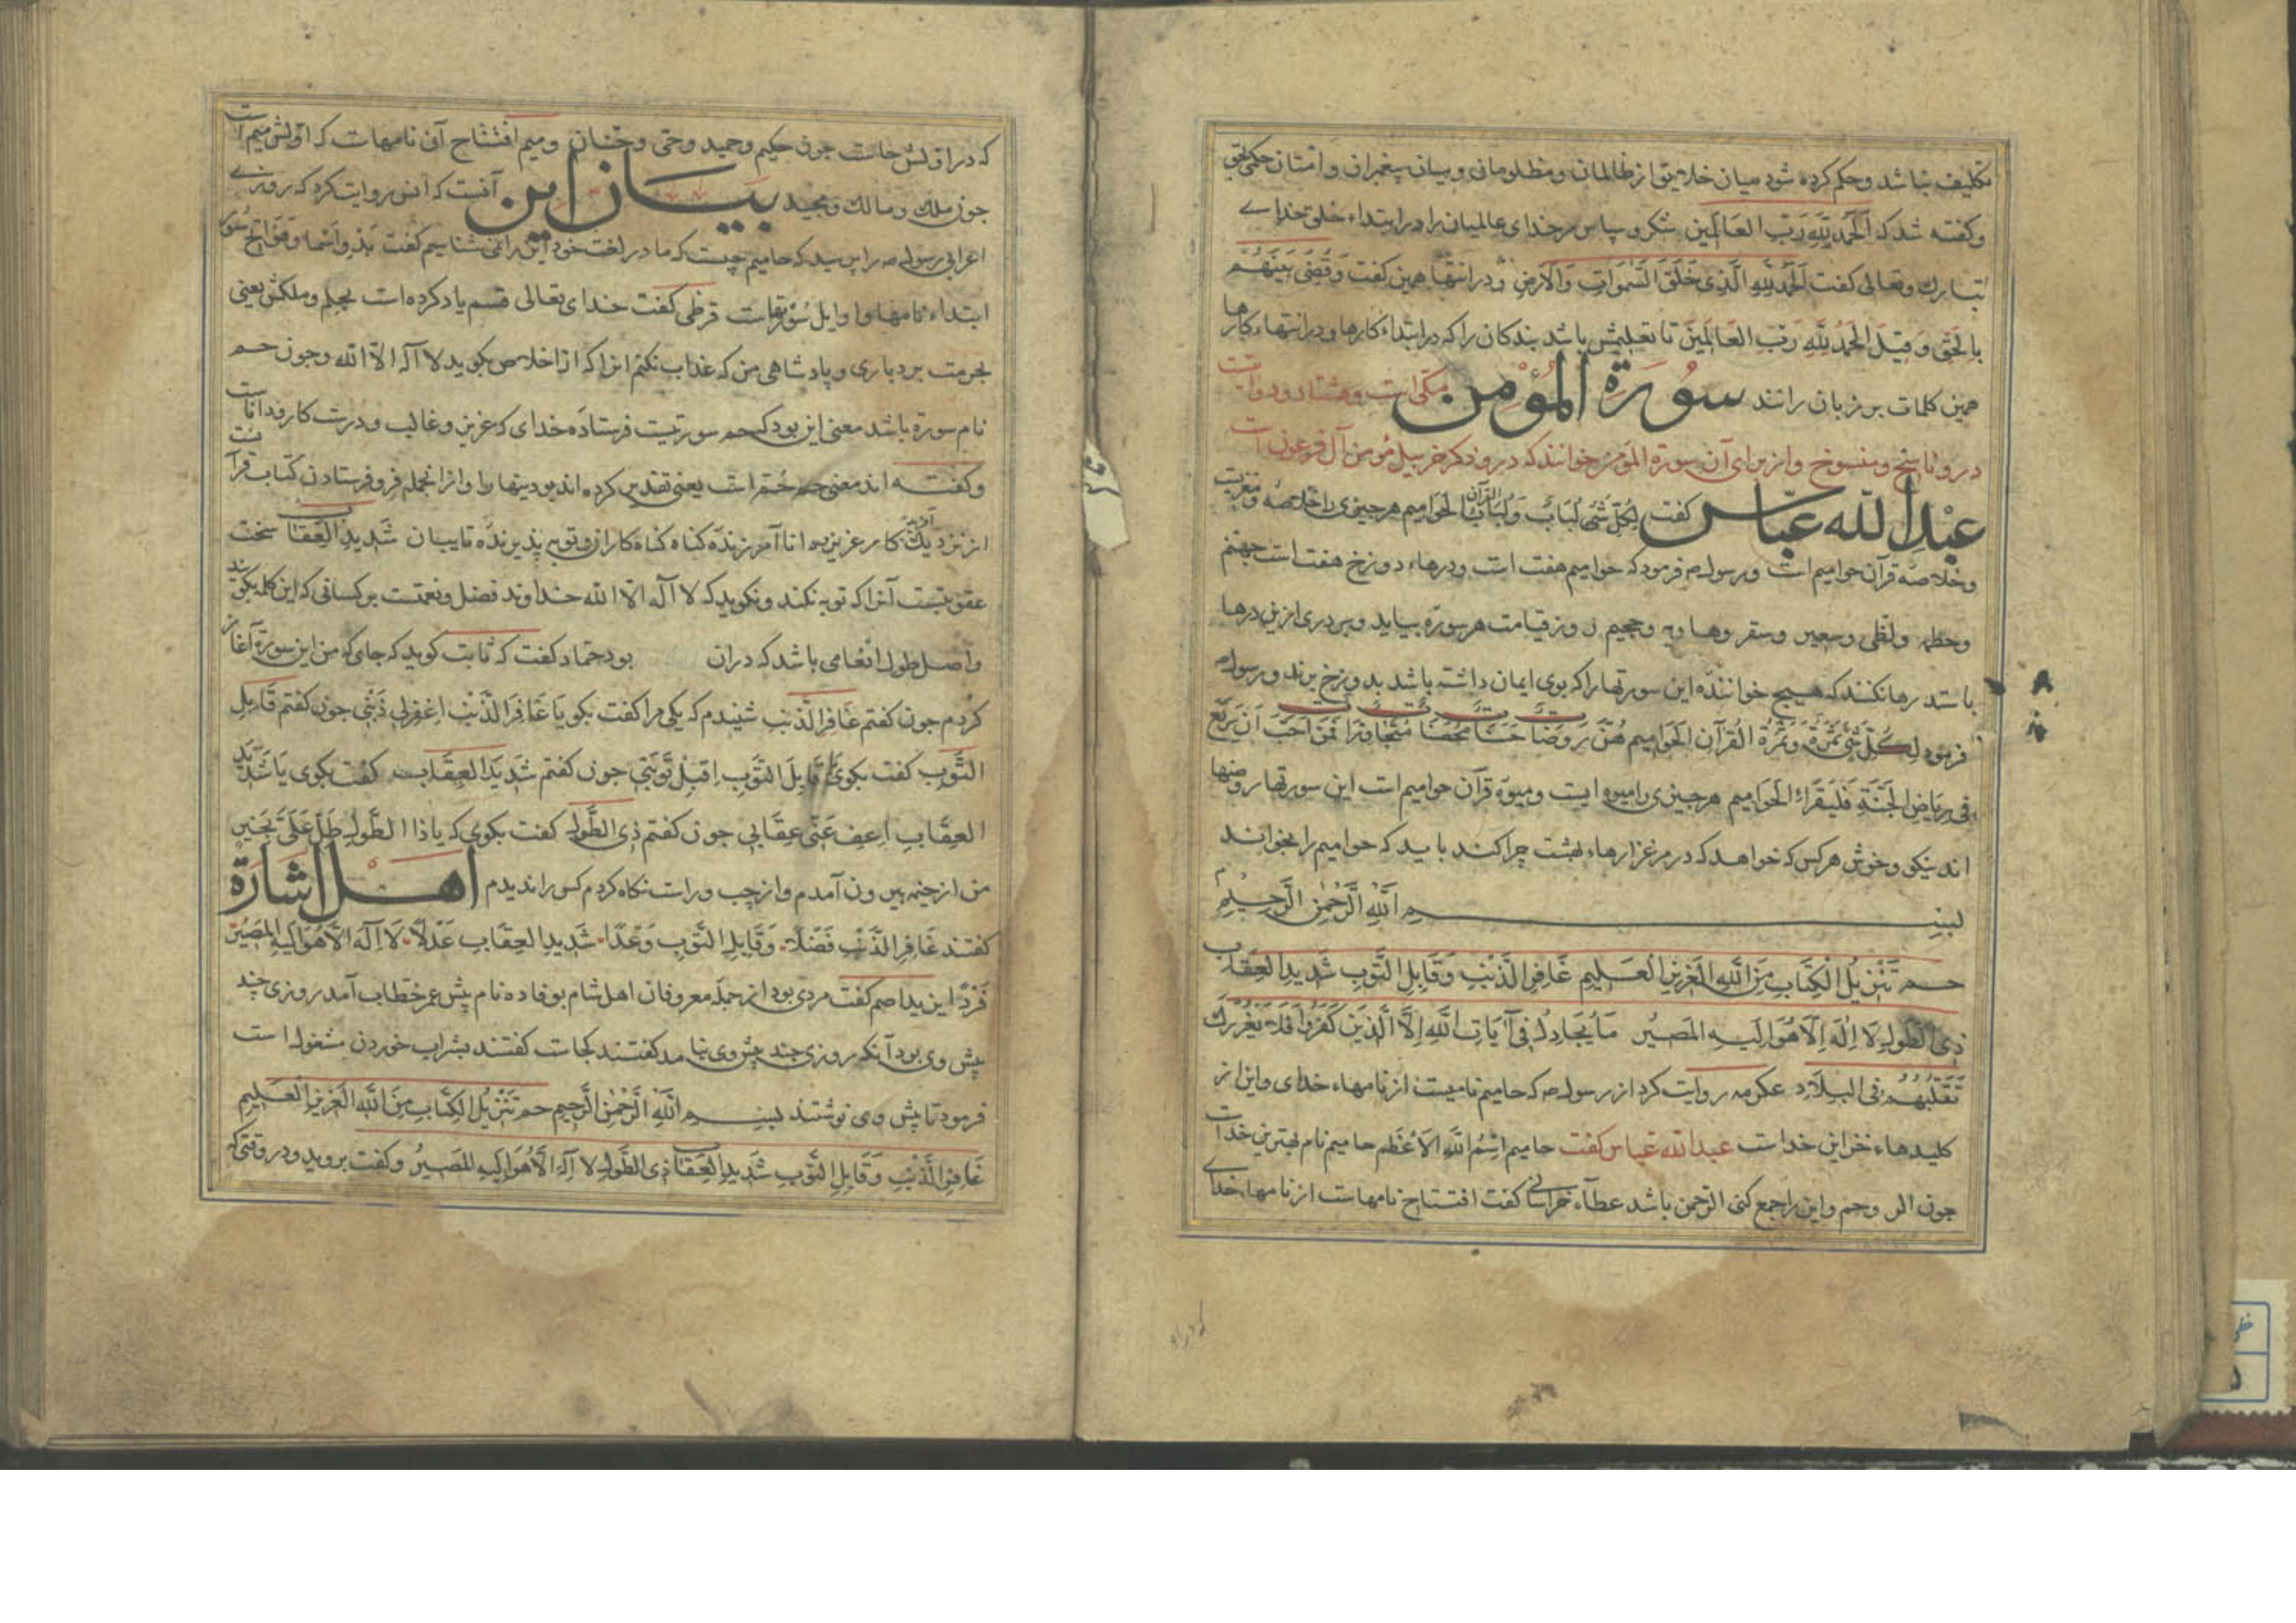 تکلیف نباشد و حکم کرده شود میان خلایق از ظالمان و مظلومان و میان پیغمبران و امتان حکمی بحق
و کفته شد که اَلْحَمدُ لِلّهِ رَبِّ العَالَمِین شکر و سپاس مرخدای عالمیان را در ابتداء خلق خدای
تبارک و تعالی کفت اَلْحَمدُ لِلّهِ الَّذِی خَلَقَ السَّمَوَاتِ وَالْاَرْضَ و در انتها همین کفت وَقُضِیَ بَیْنَهُمْ
بِالحَقِّ وَقِیلَ الْحَمدُ لِلّهِ رَبِّ العَالَمِینَ تا تعلیمش باشد بندکان را که در ابتداء کارها و در انتهاء کارها
همین کلمات بر زبان رانند سُورَةُ المُؤْمِن مکی است و هشتاد و دو آیت
درو ناسخ و منسوخ و از برای آن سورة المؤمن خوانند که درو ذکر خربیل مؤمن آل فرعون است
عَبْدُ اللّه عَبَّاس کفت لِکُلِّ شَیْءٍ لُبَابٌ وَلُبَابُ القرآن الحَوَامِیم هر چیزی را خلاصه و مغزیت
و خلاصهٔ قرآن حوامیم است و رسول صه فرمود که حوامیم هفت است و درهاء دوزخ هفت است جهنم
و حطمه و لظی و سعیر و سقر و هاویه و جحیم روز قیامت هر سورهٔ بیاید و بر دری ازین درها
باستد رها نکنند که هیچ خوانندهٔ این سورتها را که بوی ایمان داشته باشد بدوزخ برند و رسول صه
فرمود لِکُلِّ شَیْءٍ ثَمَرَةٌ وَثَمَرَةُ القُرْآنِ الحَوَامِیم هُنَّ رَوْضَاتٌ حَسَنَاتٌ مُخْصَبَاتٌ مُتَجَاوِرَاتٌ فَمَنْ اَحَبَّ اَنْ یَرْتَعَ
فِی رِیَاضِ الجَنَّةِ فَلْیَقْرَاءِ الحَوَامِیم هر چیزی را میوه ایست و میوهٔ قرآن حوامیم است این سورتها روضها
اند نیکو و خوش هر کس که خواهد که در مرغزارهاء بهشت چرا کند باید که حوامیم را بخواند
بِسْمِ اللّهِ الرَّحْمٰنِ الرَّحِیْمِ
حم تَنْزِیلُ الْکِتَابِ مِنَ اللّهِ العَزِیزِ العَلِیمِ غَافِرِ الذَّنْبِ وَقَابِلِ التَّوْبِ شَدِیدِ العِقَابِ
ذِی الطَّوْلِ لَا اِلٰهَ اِلَّا هُوَ اِلَیهِ المَصِیرُ مَا یُجَادِلُ فِی آیَاتِ اللّهِ اِلَّا الَّذِینَ کَفَرُوا فَلَا یَغْرُرْکَ
تَقَلُّبُهُمْ فِی البِلَادِ عکرمه روایت کرد از رسول صه که حامیم نامیست از نامهاء خدای و این از
کلیدهاء خزاین خداست عبدالله عباس کفت حامیم اسْمُ اللّهِ الاَعْظَم حامیم نام بهترین خداست
چون الر و حم و این را جمع کنی الرحمن باشد عطاء خراسانی کفت افتتاح نامهاست از نامهاء خدای
که در اولش حاست چون حکیم و حمید و حی و حنان و میم افتتاح آن نامهاست که اولش میم است
چون ملک و مالک و مجید بیان این آنست که انس روایت کرد که روزی
اعرابی رسول صه را پرسید که حامیم چیست که ما در لغت خود این را نمی شناسیم کفت بدو اسما و فواتح سور
ابتداء نامها و اوایل سورتهاست قرظی کفت خدای تعالی قسم یاد کرده است بحلم و ملکش یعنی
بحرمت بردباری و پادشاهی من که عذاب نکنم انرا که از اخلاص بکوید لا اله الا الله و چون حم
نام سورة باشد معنی این بود که حم سورتیست فرستادهٔ خدای که عزیز و غالب و درست کار و داناست
و کفته اند معنی حم حُمَّ است یعنی تقدیر کرده اند بودنیها را و از انجمله فرو فرستادن کتاب قرآنست
از نزدیک آفریدکار عزیز دانا آمرزندهٔ کناه کناه کاران و توبه پذیرندهٔ تایبان شَدِیدِ العِقَاب سخت
عقوبتست آنرا که توبه نکند و نکوید که لا اله الا الله خداوند فضل و نعمتست بر کسانی که این کلمه بکویند
و اصل طول انعامی باشد که دران بود حماد کفت که ثابت کوید که جای که من این سورة آغاز
کردم چون کفتم غَافِرِ الذَّنبِ شنیدم که یکی مرا کفت بکو یَا غَافِرَ الذَّنْبِ اِغْفِرلِی ذَنْبِی چون کفتم قَابِلِ
التَّوْبِ کفت بکوی یا قَابِلَ التَّوْبِ اِقْبِلْ تَوْبَتِی چون کفتم شَدِیدِ العِقَابِ کفت بکوی یَا شَدِیدَ
العِقَابِ اعفِ عَنِّی عِقَابِی چون کفتم ذِی الطَّوْلِ کفت بکوی که یا ذا الطَّولِ طُلْ عَلَیَّ بِخَیْرٍ
من از خیمه بیرون آمدم و از چپ و راست نکاه کردم کس را ندیدم اهل اشارة
کفتند غَافِرِ الذَّنْبِ فَضْلًا وَقَابِلِ التَّوْبِ وَعْدًا شَدِیدِ العِقَابِ عَدْلًا لَا اِلٰهَ اِلَّا هُوَ اِلَیهِ المَصِیْرُ
فَرْدًا این یداصم کفت مردی بود از جملهٔ معروفان اهل شام بوفاده نام پیش عمر خطاب آمد روزی چند
پیش وی بود آنکه روزی چند پیش وی نیامد کفتند کجاست کفتند بشراب خوردن مشغول است
فرمود تا پیش وی نوشتند بِسْمِ اللّهِ الرَّحْمٰنِ الرَّحِیمِ حم تَنْزِیلُ الکِتَابِ مِنَ اللّهِ العَزِیزِ العَلِیمِ
غَافِرِ الذَّنْبِ وَقَابِلِ التَّوْبِ شَدِیدِ العِقَابِ ذی الطَّوْلِ لا اِلٰهَ اِلَّا هُوَ اِلَیهِ المَصِیرُ و کفت بروید و در وقتی که